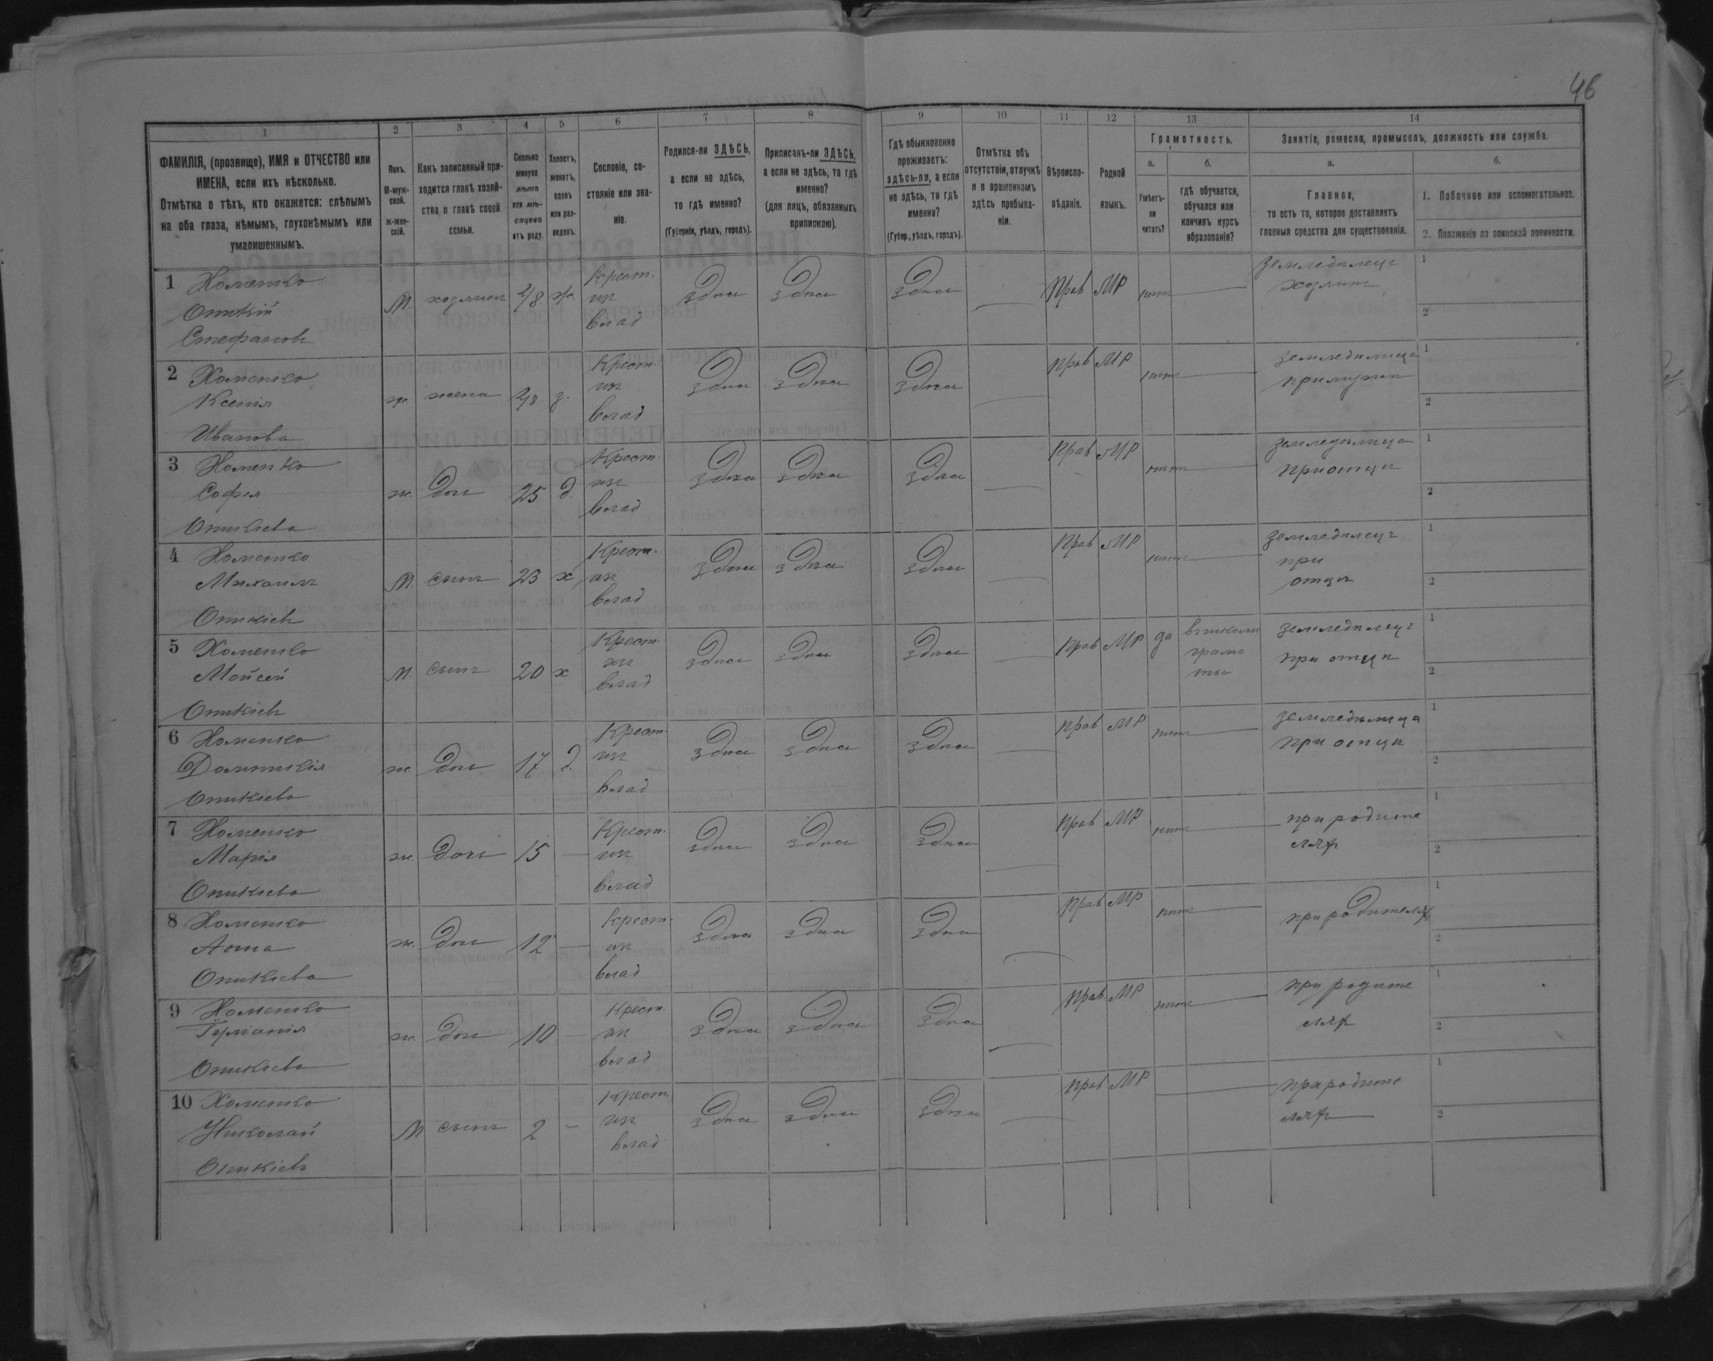 46
1 2 3 4 5 6 7 8 9 10 11 12 13 14
ФАМИЛІЯ, (прозвище), ИМЯ и ОТЧЕСТВО или
ИМЕНА, если ихъ нѣсколько.
Отмѣтка о тѣхъ, кто окажется: слѣпымъ
на оба глаза, нѣмымъ, глухонѣмымъ или
умалишеннымъ.
Полъ.
М-муж-
ской.
Ж-жен-
скій.
Какъ записанный при-
ходится главѣ хозяй-
ства и главѣ своей
семьи.
Сколько
минуло
лѣтъ
или мѣ-
сяцевъ
отъ роду.
Холостъ,
женатъ,
вдовъ
или раз-
веденъ.
Сословіе, со-
стояніе или зва-
ніе.
Родился-ли ЗДѢСЬ,
а если не здѣсь,
то гдѣ именно?
(Губернія, уѣздъ, городъ).
Приписанъ-ли ЗДѢСЬ,
а если не здѣсь, то гдѣ
именно?
(для лицъ, обязанныхъ
припискою).
Гдѣ обыкновенно
проживаетъ:
здѣсь-ли, а если
не здѣсь, то гдѣ
именно?
(Губер., уѣздъ, городъ).
Отмѣтка объ
отсутствіи, отлучкѣ
и о временномъ
здѣсь пребыва-
ніи.
Вѣроиспо-
вѣданіе.
Родной
языкъ.
Грамотность.
а.
Умѣетъ-
ли
читать?
б.
гдѣ обучается,
обучался или
кончилъ курсъ
образованія?
Занятіе, ремесло, промыселъ, должность или служба.
а.
Главное,
то есть то, которое доставляетъ
главныя средства для существованія.
б.
1. Побочное или вспомогательное.
2. Положеніе по воинской повинности.
1 Хоменко
Оникій
Стефановъ
М. хозяинъ 48 ж. Крест. из влад здѣсь здѣсь здѣсь Прав МР нѣтъ земледѣлецъ
хозяинъ
1
2
2 Хоменко
Ксенія
Иванова
ж. жена 48 з. Крест. из влад здѣсь здѣсь здѣсь Прав МР нѣтъ земледѣлица
при мужѣ
1
2
3 Хоменко
Софія
Оникіева
ж. дочь 25 д. Крест. из влад здѣсь здѣсь здѣсь Прав МР нѣтъ земледѣлица
при отцѣ
1
2
4 Хоменко
Михаилъ
Оникіевъ
М. сынъ 23 х Крест. из влад здѣсь здѣсь здѣсь Прав МР нѣтъ земледѣлецъ
при
отцѣ
1
2
5 Хоменко
Мойсей
Оникіевъ
М. сынъ 20 х Крест. из влад здѣсь здѣсь здѣсь Прав МР да
грамо
ты
земледѣлецъ
при отцѣ
1
2
6 Хоменко
Домникія
Оникіева
ж. дочь 17 д. Крест. из влад здѣсь здѣсь здѣсь Прав МР нѣтъ земледѣлица
при отцѣ
1
2
7 Хоменко
Марія
Оникіева
ж. дочь 15 — Крест. из влад здѣсь здѣсь здѣсь Прав МР нѣтъ при родите
ляхъ
1
2
8 Хоменко
Анна
Оникіева
ж. дочь 12 — Крест. из влад здѣсь здѣсь здѣсь Прав МР нѣтъ при родителяхъ
1
2
9 Хоменко
Оникіева
ж. дочь 10 — Крест. из влад здѣсь здѣсь здѣсь Прав МР нѣтъ при родите
ляхъ
1
2
10 Хоменко
Николай
Оникіевъ
М сынъ 2 — Крест. из влад здѣсь здѣсь здѣсь Прав МР — при родите
ляхъ
1
2